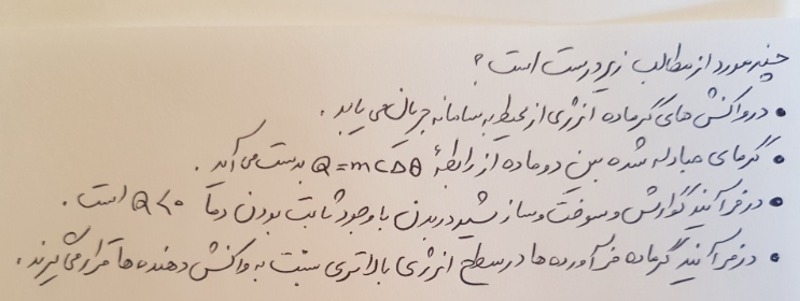 چند مورد از مطالب زیر درست است؟
• در واکنش های گرماده انرژی از محیط به سامانه جریان می یابد.
• گرمای مبادله شده بین دو ماده از رابطهٔ Q=mcΔθ بدست می آید.
• در فرآیند گوارش و سوخت و ساز شیر در بدن با وجود ثابت بودن دما Q<0 است.
• در فرآیند گرماده فرآورده ها در سطح انرژی بالاتری نسبت به واکنش دهنده ها قرار می گیرند.